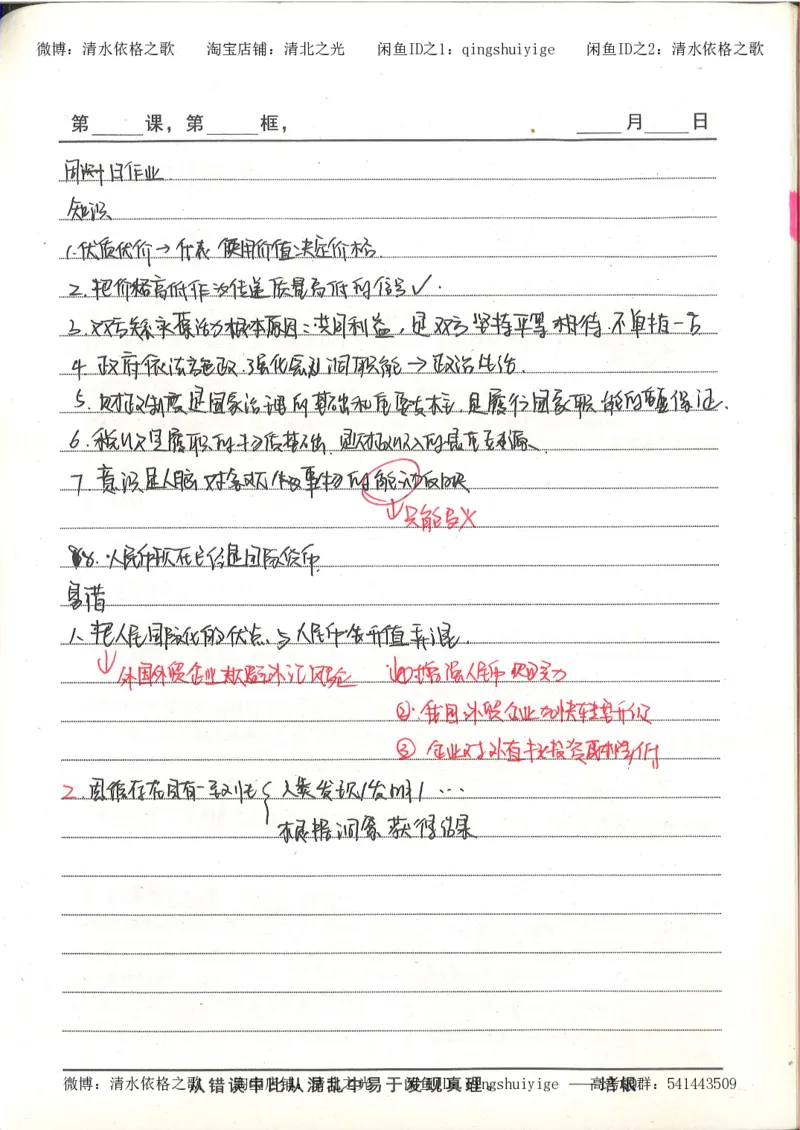 微博：清水依格之歌 淘宝店铺：清北之光 闲鱼ID之1：qingshuiyige 闲鱼ID之2：清水依格之歌
第 课，第 框， 月 日
日作业
知识
1.优质优价→代表 使用价值决定价格.
2.把价格高低作为传递质量高低的信号✓.
3.双方 根本原因：共同利益，是双方坚持平等相待.不单指一方
4.政府依法 政.强化 职能→政治生活.
5.财政制度是国家治理的基础和重要支柱.是履行国家职能的 保证.
6.税收是履职的物质基础.是财政收入的最 来源.
7.意识是人脑对客观 事物的能动反映
↓只能后义
8.人民币现在已经是国际货币
易错
1.把人民币国际化的优点.与人民币 升值弄混.
↓外国外贸企业 外汇风险 ①增强人民币购买力
②.我国外贸企业加快转型升级
③企业对外直接投资成本降低
2.思维存在具有一致性{人类发现/发明/…
根据 获得结果
微博：清水依格之歌 淘宝店铺：清北之光 闲鱼ID之1：qingshuiyige 高考 群：541443509
从错误中比从混乱中易于发现真理。 ——培根